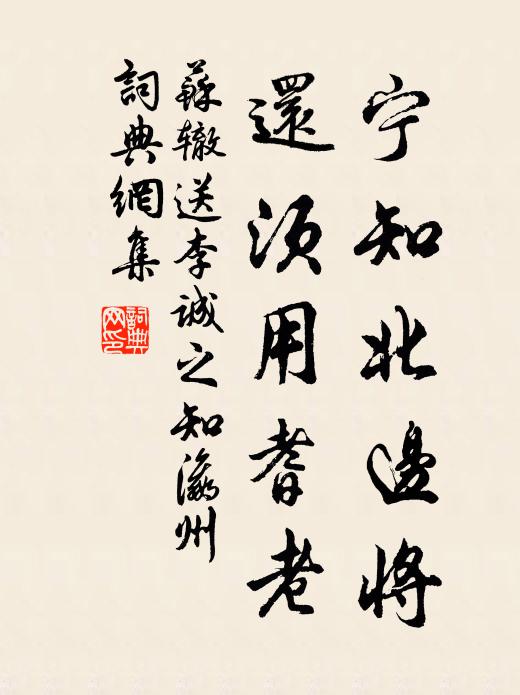 宁知北邊將
還須用耆老
蘇辙送李诚之知瀛州
詞典網集
詞典网印